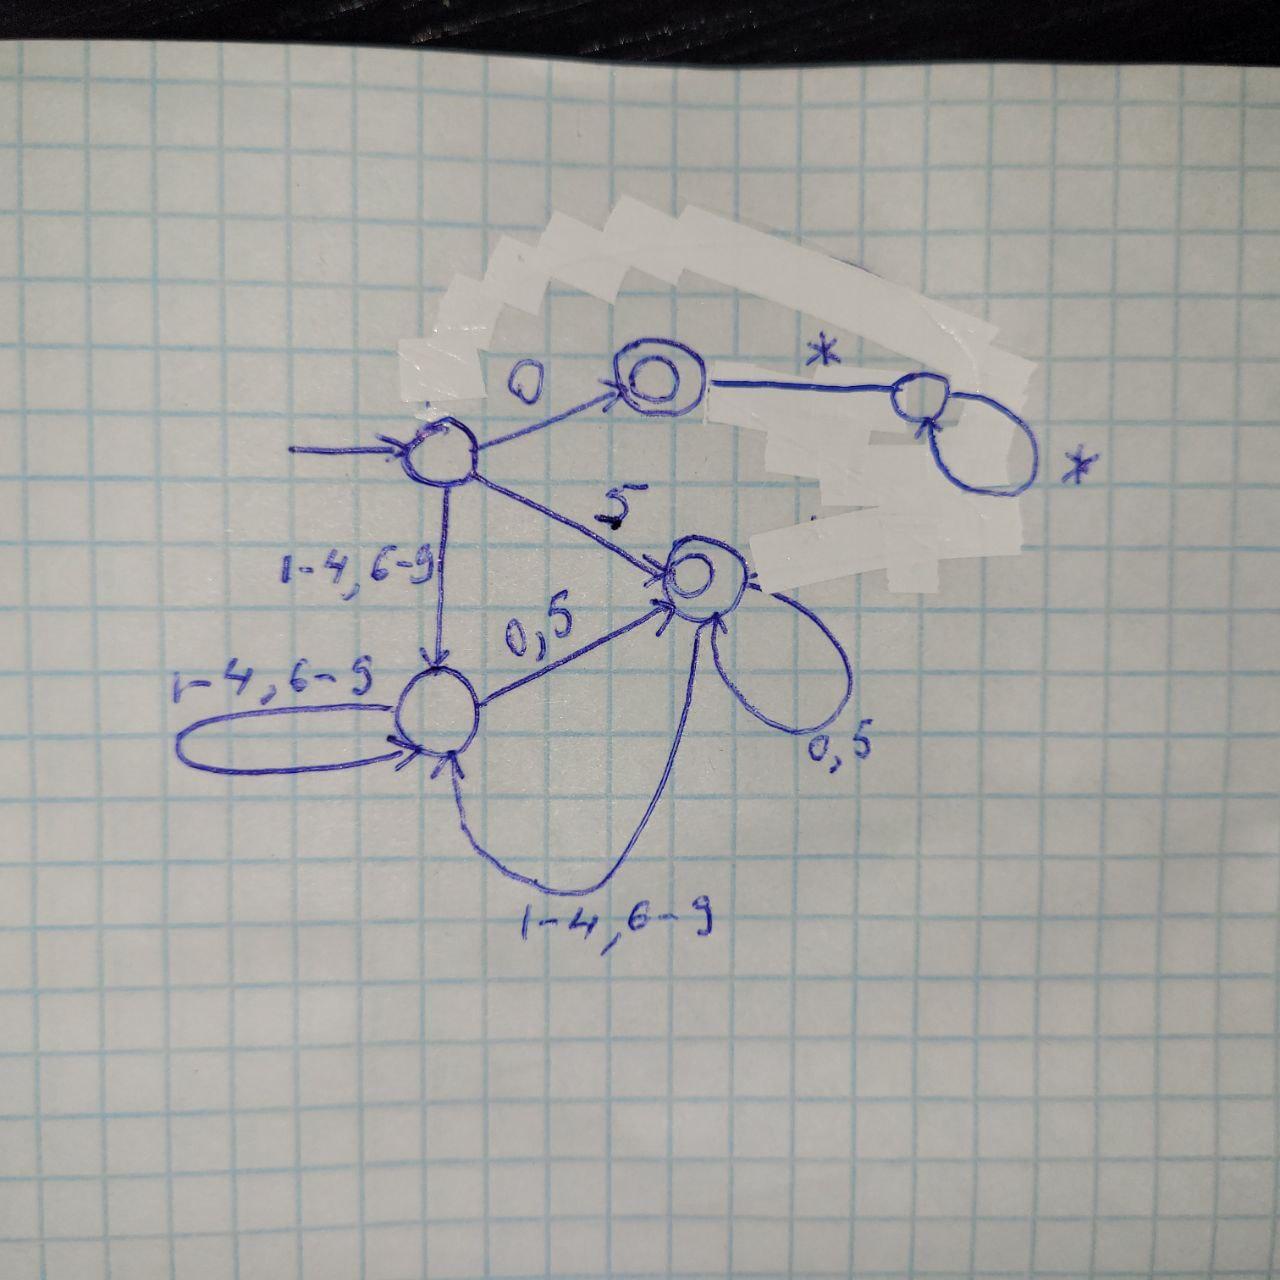 *
0
*
5
1-4,6-9
0,5
1-4,6-9
0,5
1-4,6-9